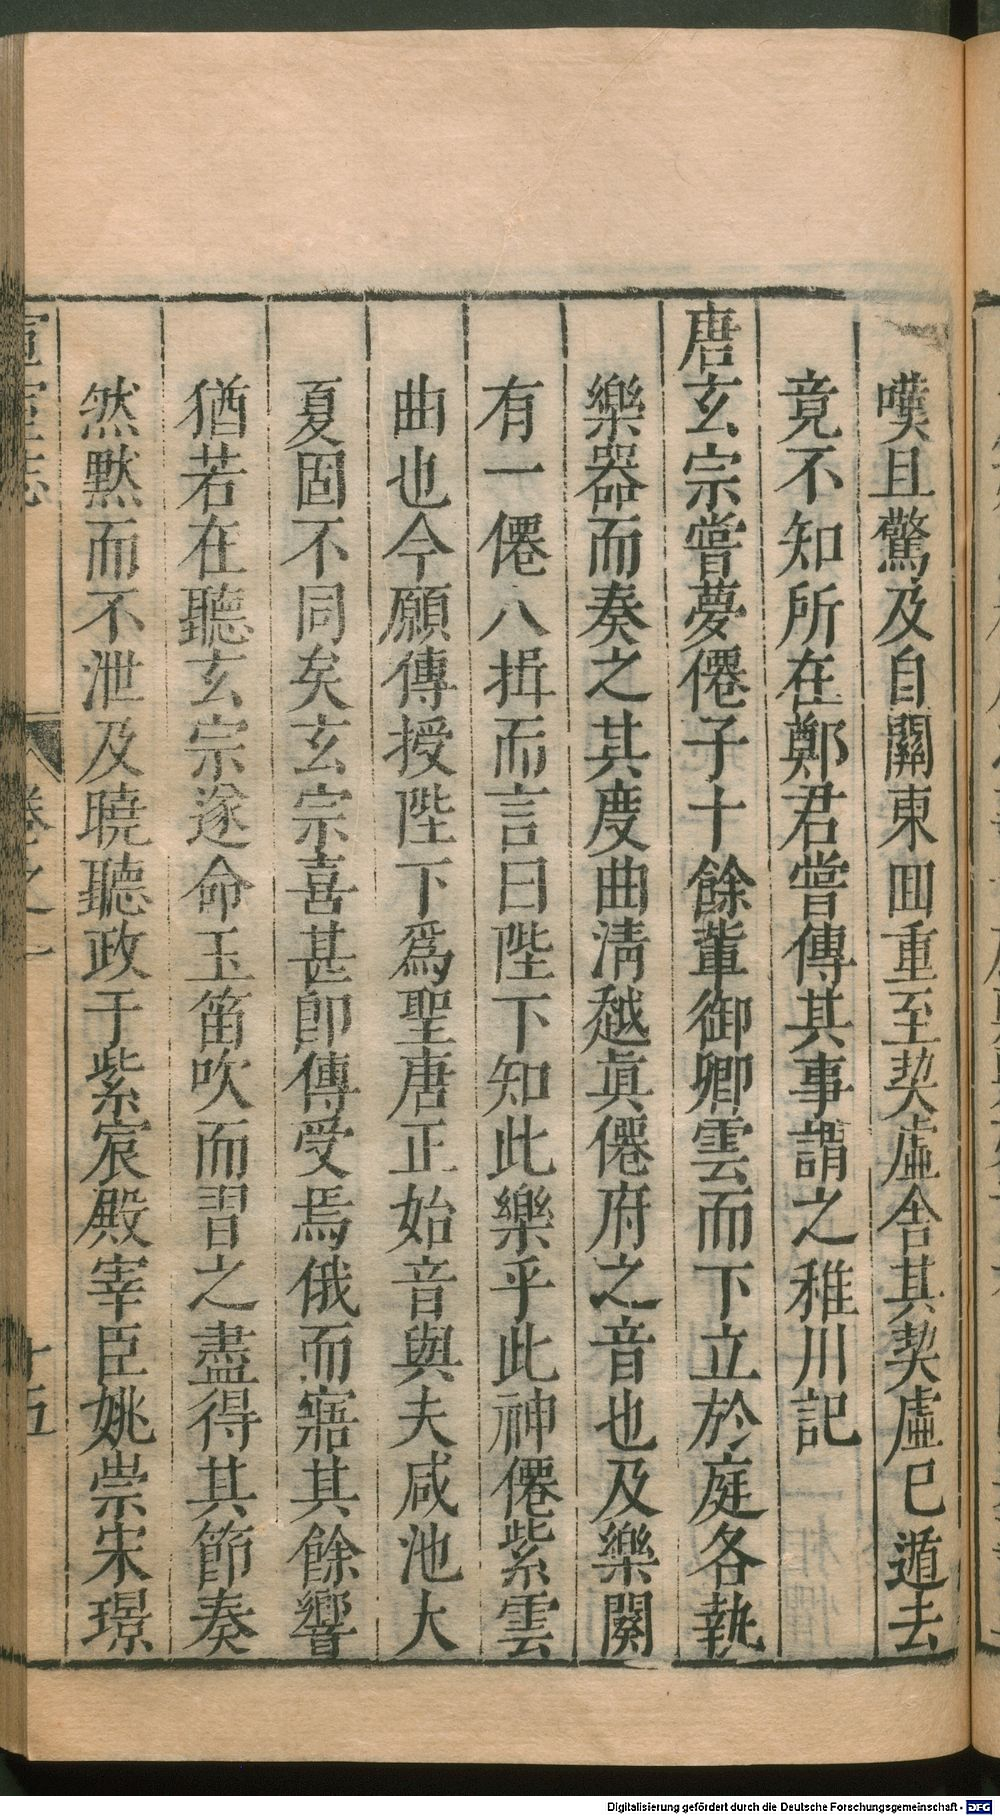 嘆且驚及自關東囬重至契虛舍其契虛已遁去
竟不知所在鄭君嘗傳其事謂之稚川記
唐玄宗嘗夢僊子十餘輩御卿雲而下立於庭各執
樂器而奏之其度曲淸越眞僊府之音也及樂闋
有一僊人揖而言曰陛下知此樂乎此神僊紫雲
曲也今願傳授陛下爲聖唐正始音與夫咸池大
夏固不同矣玄宗喜甚卽傳受焉俄而寤其餘響
猶若在聽玄宗遂命玉笛吹而習之盡得其節奏
然黙而不泄及曉聽政于紫宸殿宰臣姚崇宋璟
卷之一
十五
Digitalisierung gefördert durch die Deutsche Forschungsgemeinschaft - DFG